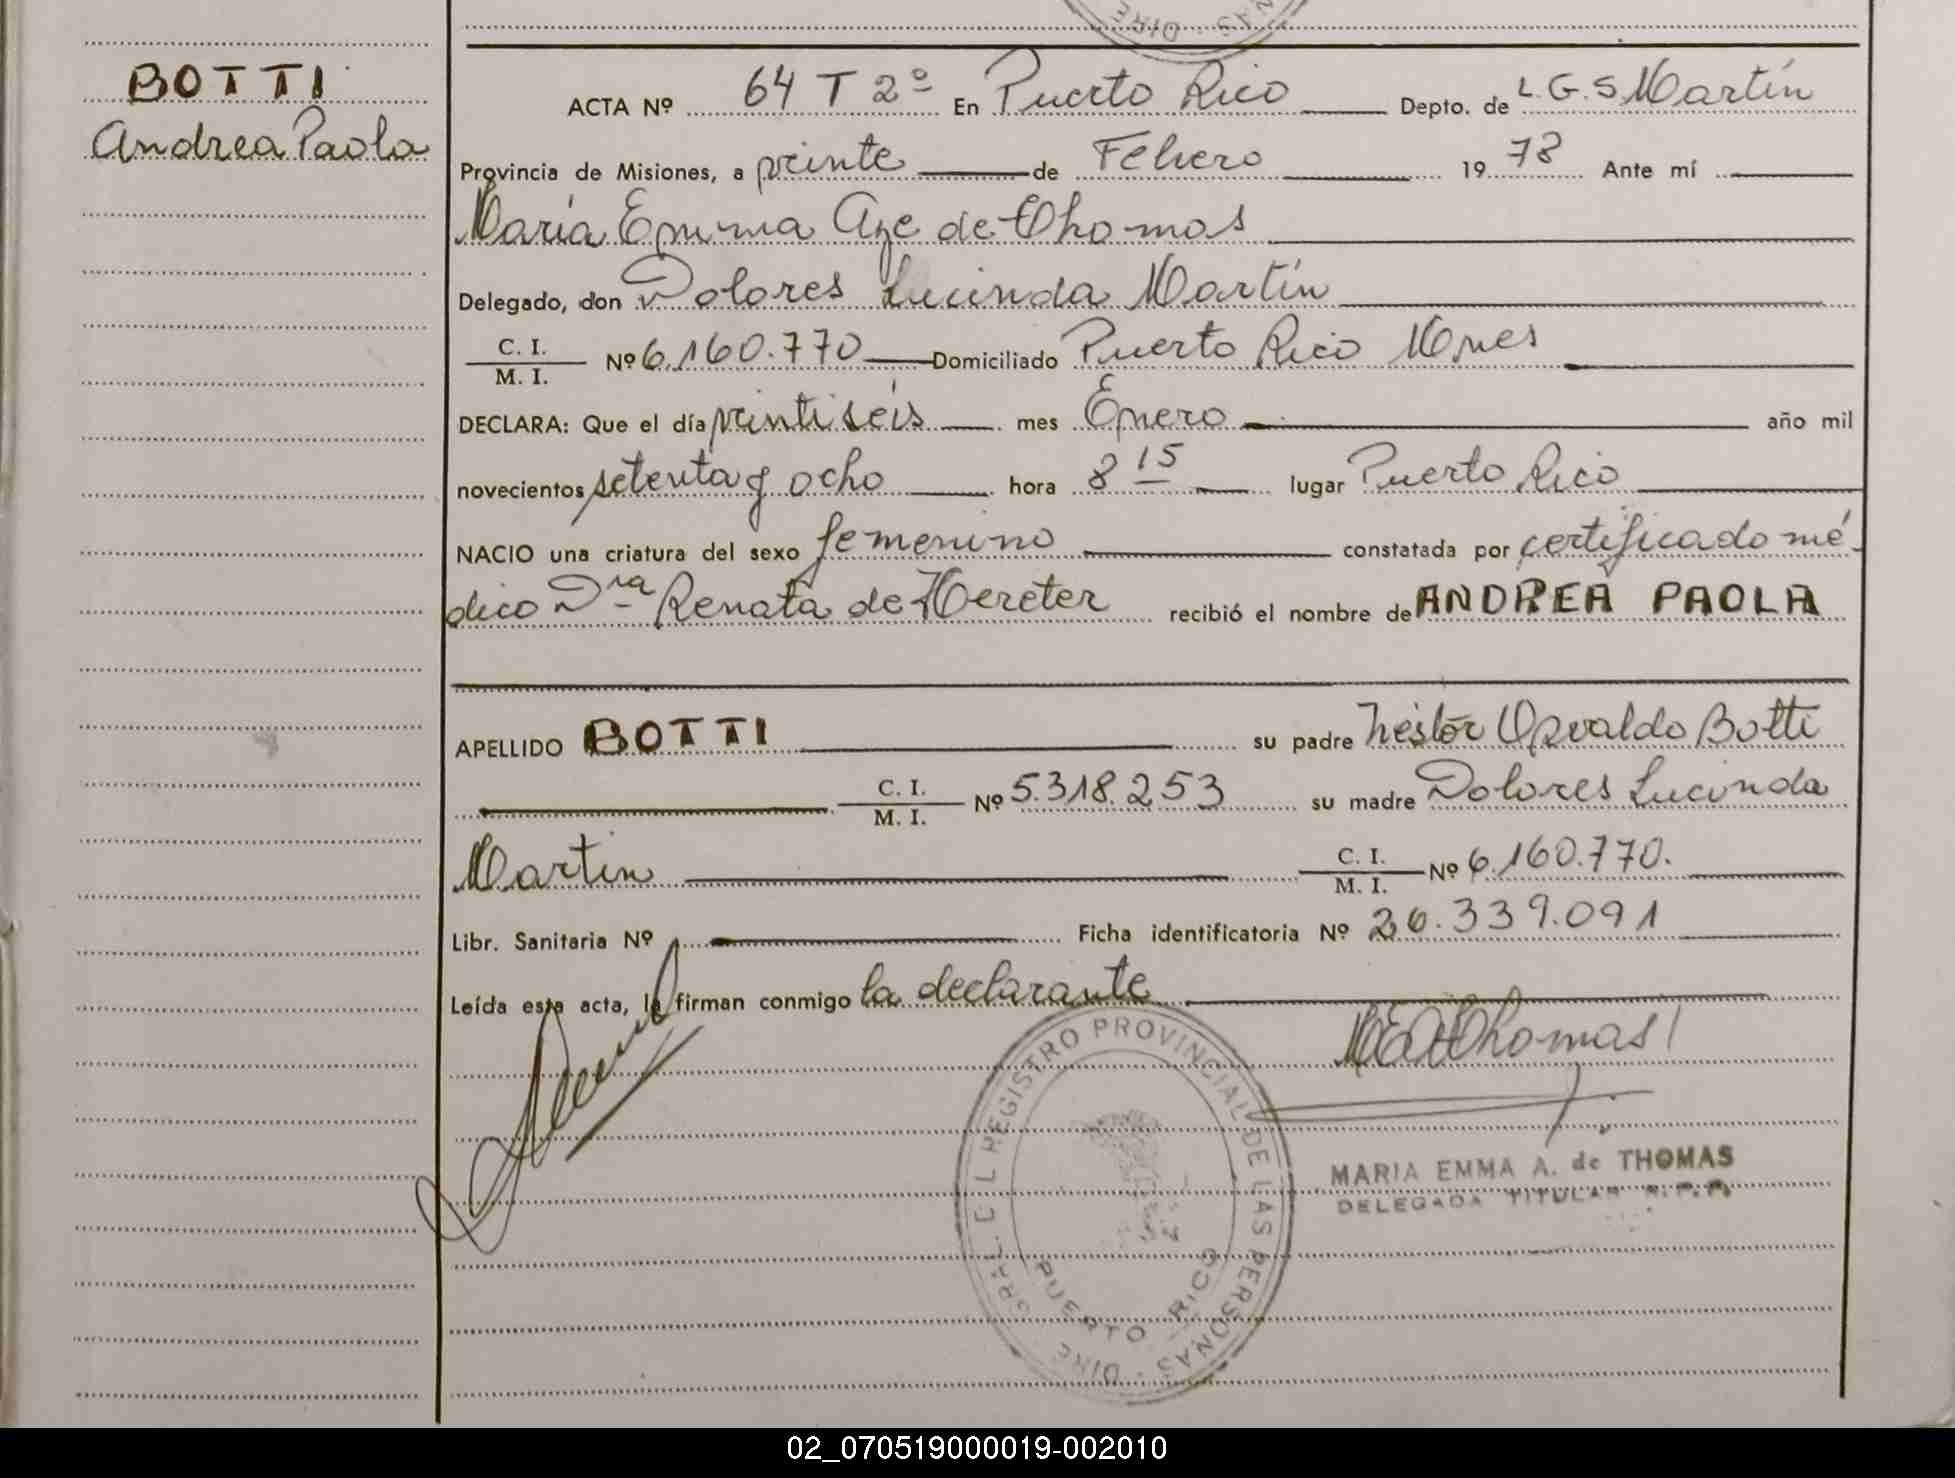 BOTTI
Andrea Paola
ACTA Nº 64 T 2º En Puerto Rico Depto. de L.G.S Martín
Provincia de Misiones, a veinte de Febrero 1978 Ante mí
María Emma Aze de Thomas
Delegado, don Dolores Lucinda Martín
C. I.
M. I. Nº 6.160.770 Domiciliado Puerto Rico Mnes
DECLARA: Que el día veintiséis mes Enero año mil
novecientos setenta y ocho hora 8 15 lugar Puerto Rico
NACIO una criatura del sexo femenino constatada por certificado mé-
dico Dra Renata de Hereter recibió el nombre de ANDREA PAOLA
APELLIDO BOTTI su padre Néstor Osvaldo Botti
C. I.
M. I. Nº 5.318.253 su madre Dolores Lucinda
Martin C. I.
M. I. Nº 6.160.770.
Libr. Sanitaria Nº Ficha identificatoria Nº 26.339.091
Leída esta acta, la firman conmigo la declarante
MEAThomas
MARIA EMMA A. de THOMAS
DELEGADA TITULAR R.P.P.
GRAL. EL REGISTRO PROVINCIAL DE LAS PERSONAS - DIRE
PUERTO RICO
02_070519000019-002010